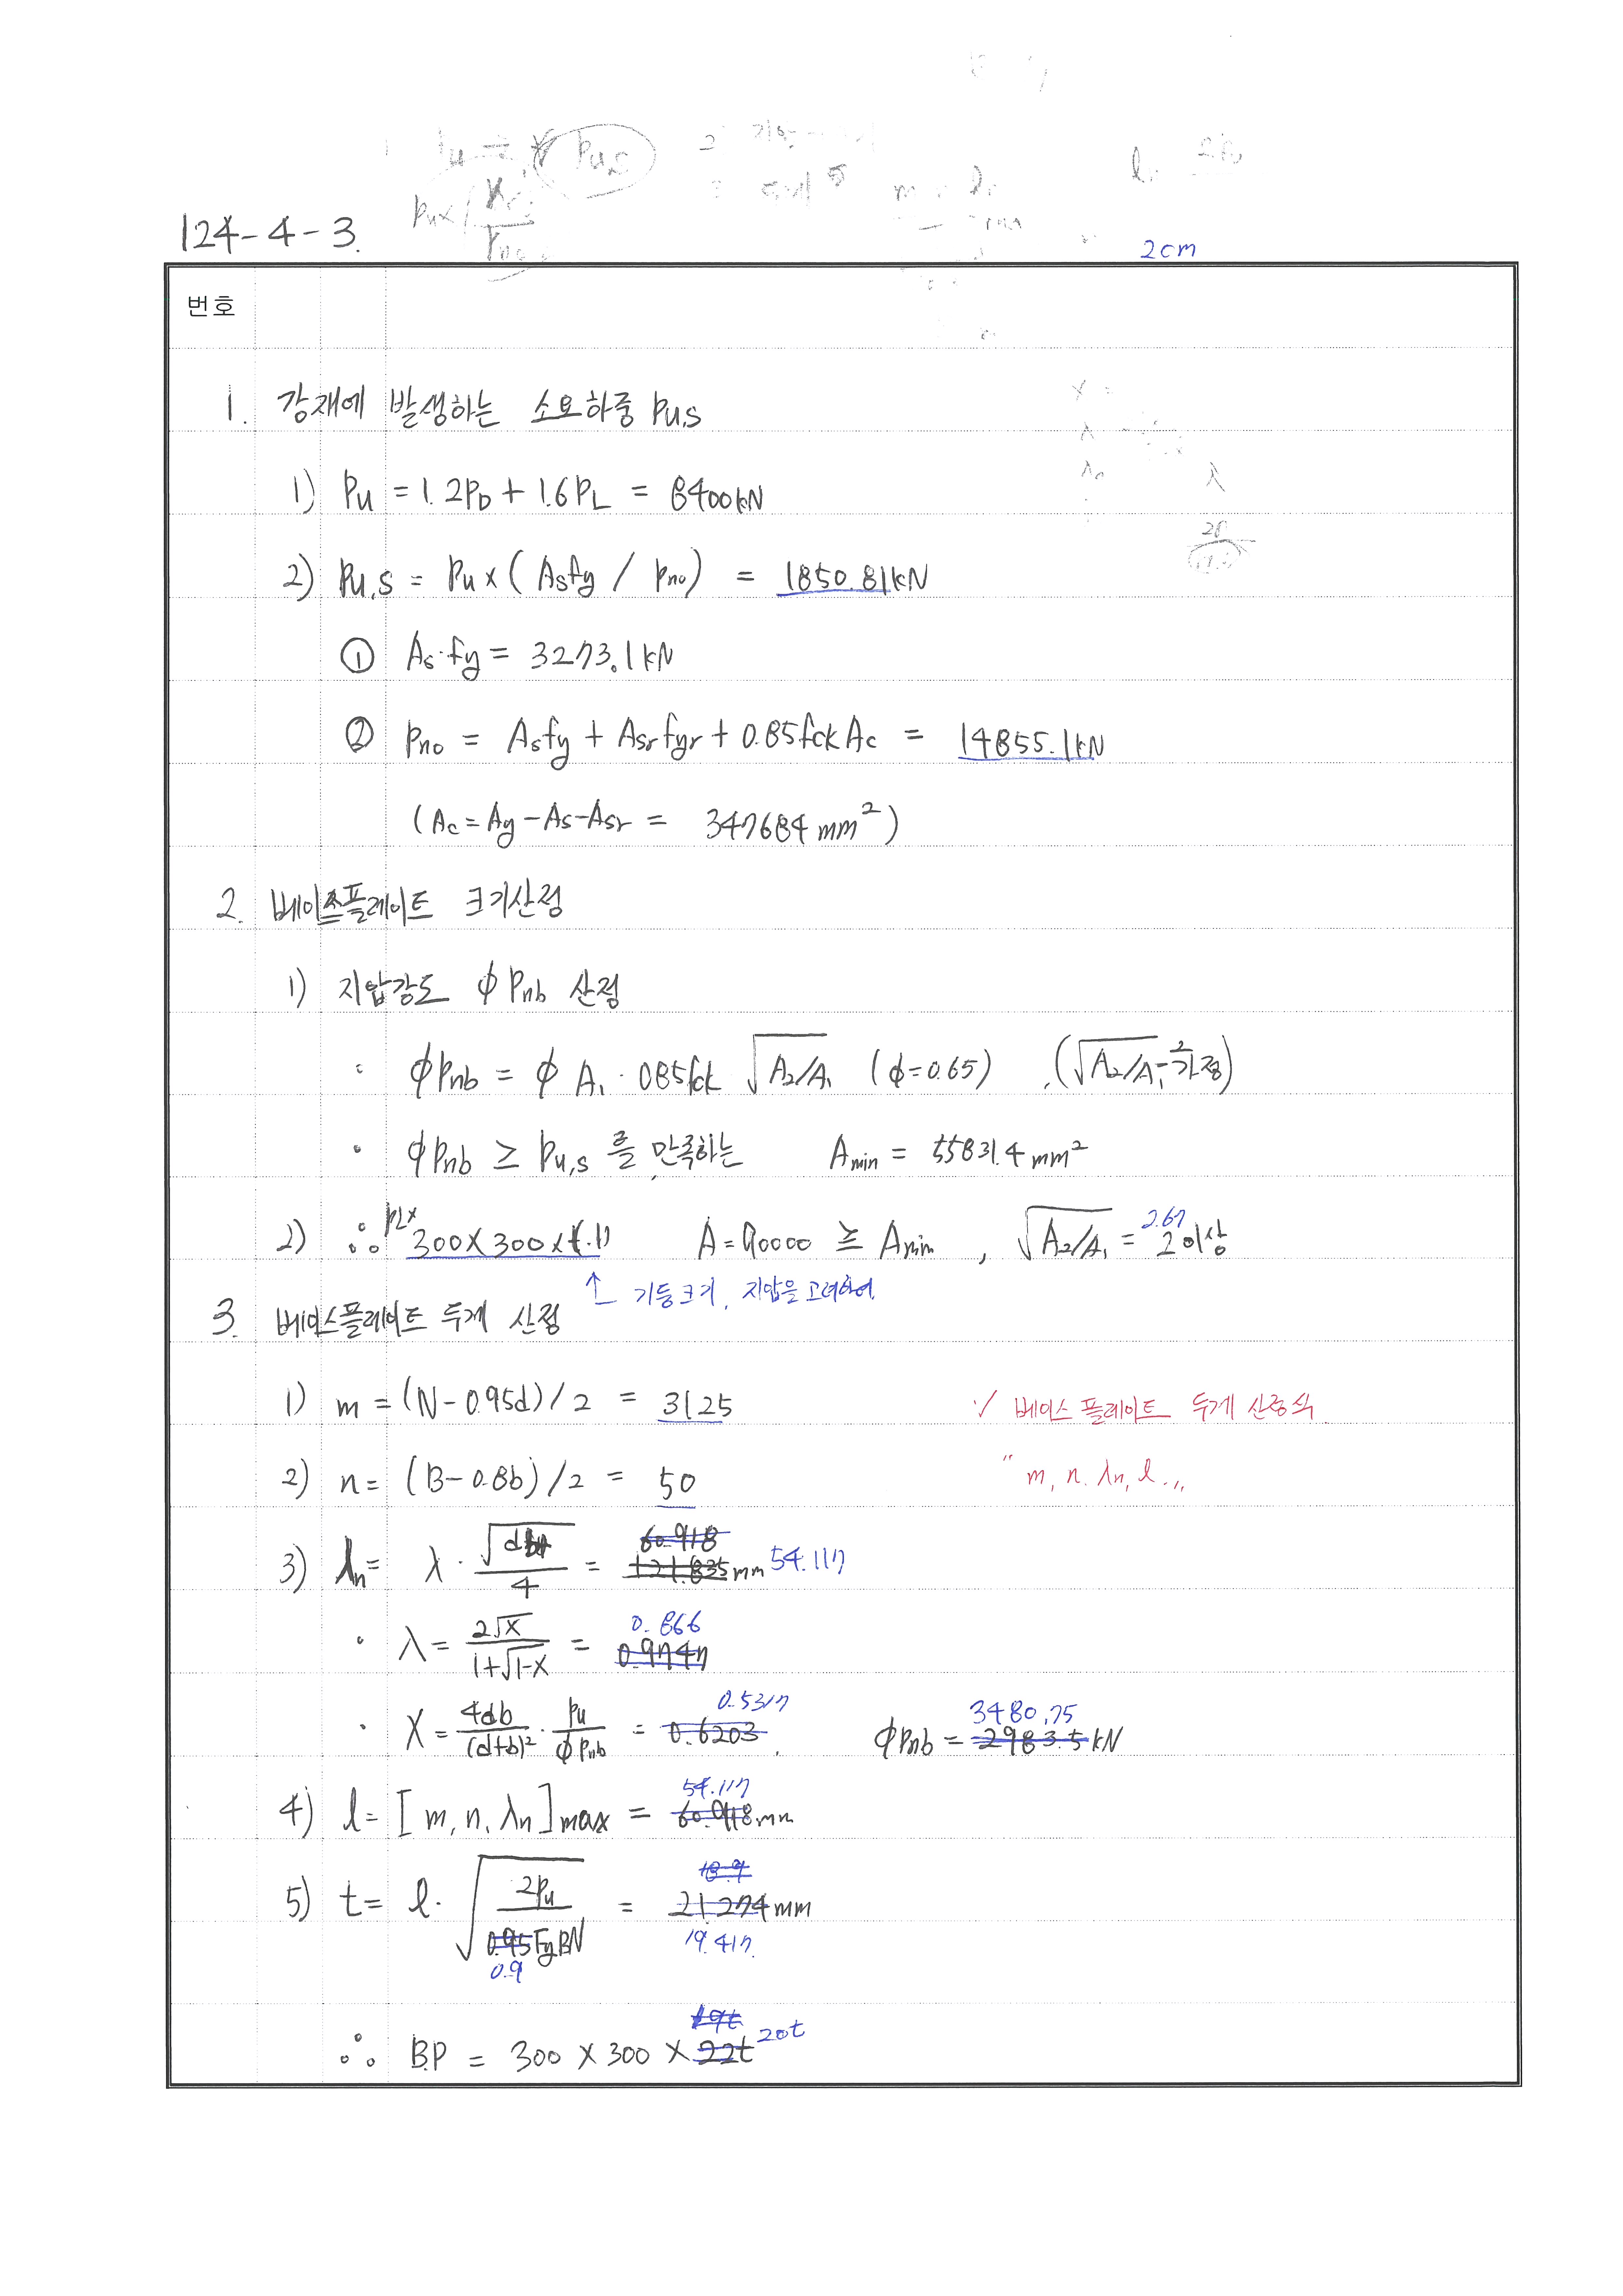 124-4-3.
2cm
번호
1. 강재에 발생하는 소요하중 Pu,s
1) Pu = 1.2PD + 1.6PL = 8400kN
2) Pu,s = Pu × (Asfy / Pno) = 1850.81kN
① As·fy = 3273.1kN
② Pno = Asfy + Asrfyr + 0.85fckAc = 14855.1kN
(Ac = Ag - As - Asr = 347684mm²)
2. 베이스플레이트 크기산정
1) 지압강도 φPnb 산정
φPnb = φ A₁ · 0.85fck √A₂/A₁ (φ=0.65) (√A₂/A₁ = 2 가정)
· φPnb ≥ Pu,s 를 만족하는 Amin = 55831.4mm²
2) ∴ PL× 300×300×t A = 90000 ≥ Amin , √A₂/A₁ = 2.67 2이상
↑ 기둥크기, 지압을 고려하여
3. 베이스플레이트 두께 산정
1) m = (N-0.95d)/2 = 31.25
√ 베이스 플레이트 두께 산정식
2) n = (B-0.8b)/2 = 50
" m, n, λn, l .,,
3) λn = λ · √db/4 = 60.918 121.835mm 54.117
· λ = 2√X / 1+√1-X = 0.866 0.9747
· X = 4db/(d+b)² · Pu/φPnb = 0.5317 0.6203 φPnb = 3480.75 2983.5kN
4) l = [m, n, λn]max = 54.117 60.918mm
5) t = l · √2Pu / 0.95FyBN 0.9 = 18.9 21.274mm 19.417
∴ B.P = 300 × 300 × 22t 19t 20t